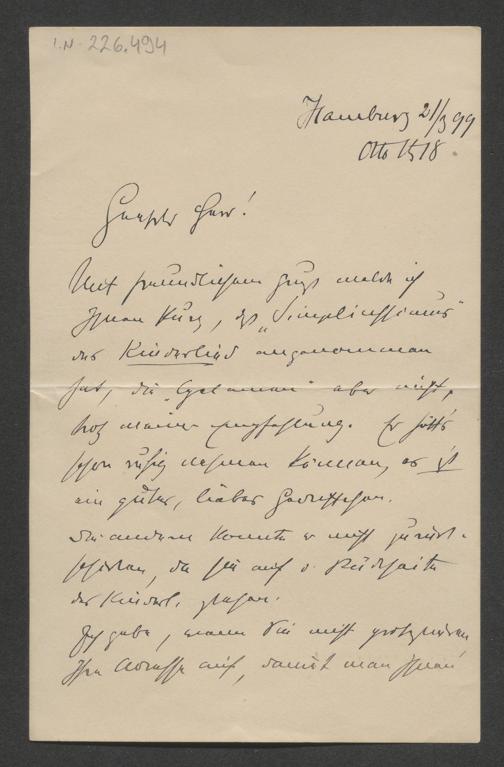 I.N. 226.494
Hamburg 21/3 99
Otto 15 18.
Geehrter Herr!
Mit freundlichem Gruß melde ich
Ihnen kurz, daß „Simplicissimus"
das Kinderlied angenommen
hat, die „Cyclamen" aber nicht,
trotz meiner Empfehlung. Er hätt's
schon ruhig nehmen können, es ist
ein gutes, liebes Gedichtchen.
Die andern konnte er nicht zurück-
schicken, da sie auf d. Rückseite
des Kinderl. stehen.
Ich gebe, wenn Sie nicht protestieren
Ihre Adresse auf, damit man Ihnen